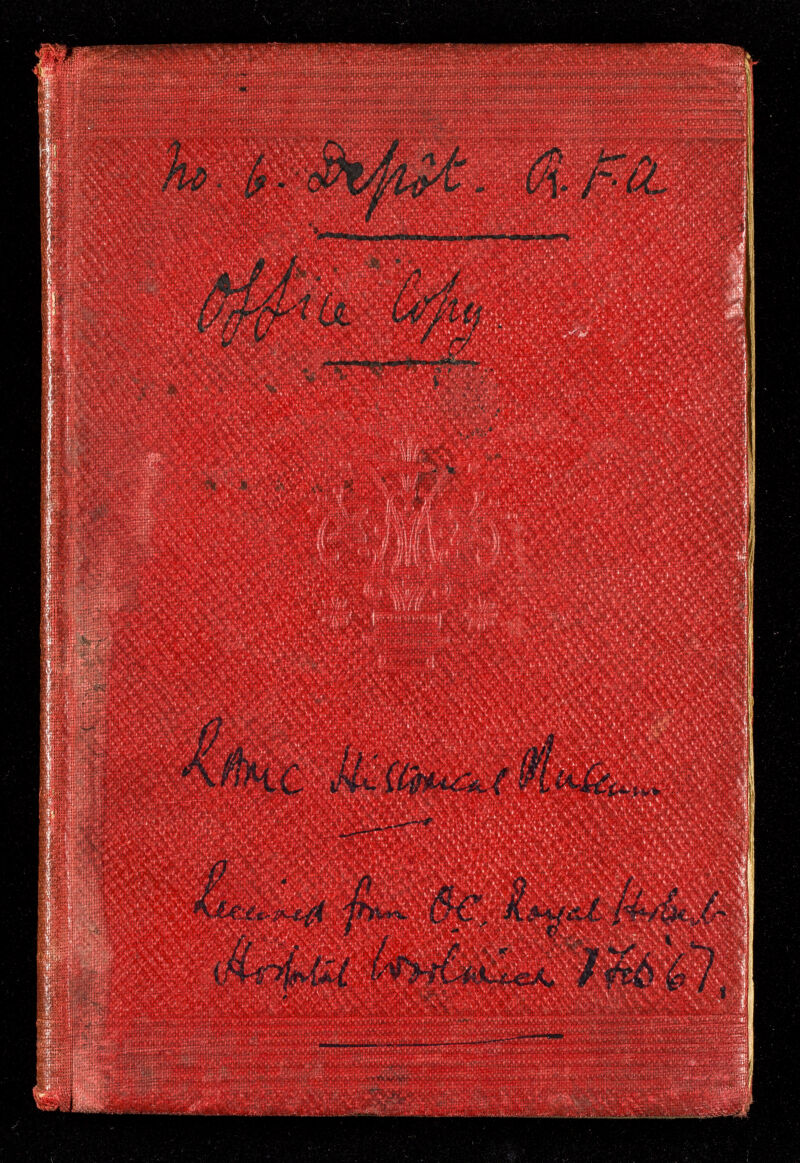 No. 6. Depôt. R.F.A
Office Copy.
RAMC Historical Museum
Received from OC, Royal Herbert
Hospital Woolwich 7 Feb '67.